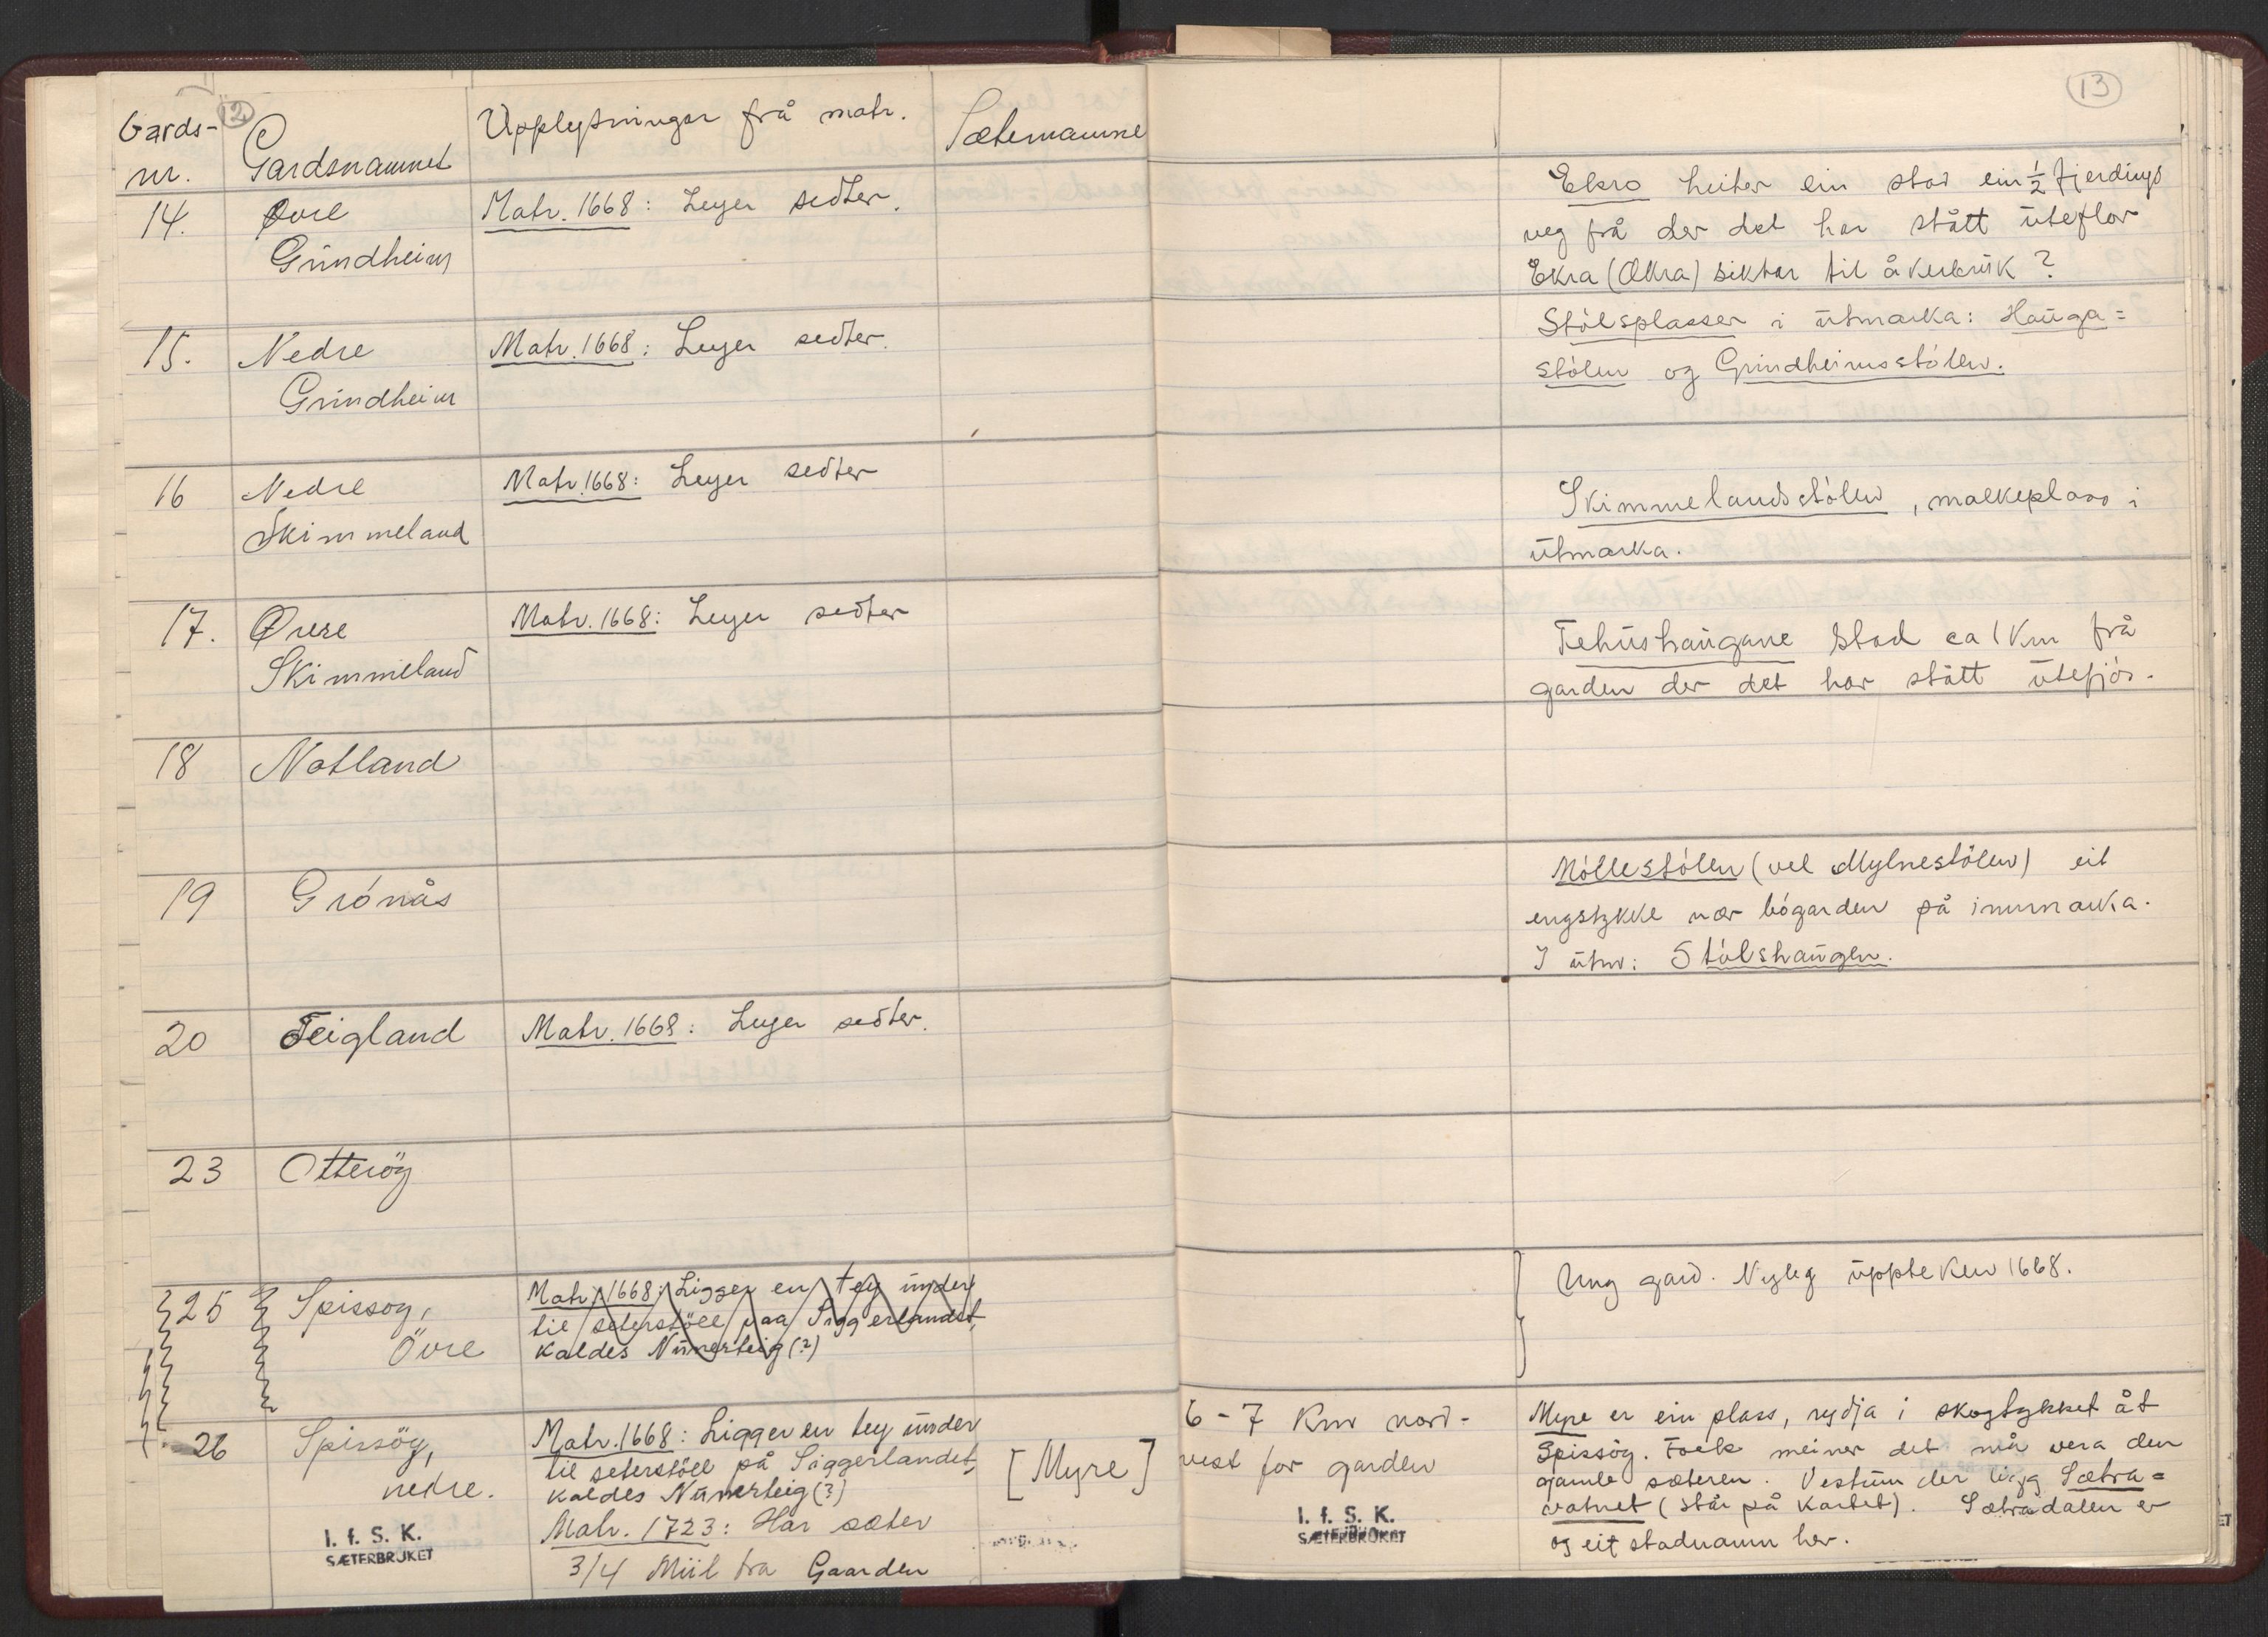 12
Gards-
nr.
Gardsnamnet
Upplysningar frå matr.
Sæternamne
14.
Øvre
Grindheim
Matr. 1668: Leyer sedter.
15.
Nedre
Grindheim
Matr. 1668: Leyer sedter.
16
Nedre
Skimmeland
Matr. 1668: Leyer sedter
17.
Øvre
Skimmeland
Matr. 1668: Leyer sedter
18
Notland
19
Grónås
20
Teigland
Matr. 1668: Leyer sedter.
23
Otteröy
25
Spissoy,
Övre
Matr. 1668: Ligger en tey under
til seterstöll paa Siggerlandet,
kaldes Nünerteig (?)
26
Spissöy,
nedre.
Matr. 1668: Ligger en tey under
til seterstöll på Siggerlandet,
kaldes Nünerteig (?)
Matr. 1723: Har sæter
3/4 Miil fra Gaarden
[Myre]
I. f. S. K.
SÆTERBRUKET
13
Ekro heiter ein stad ein ½ fjerdings
veg frå der det har stått ūteflor
Ekra (Økra) siktar til åkerbrūk?
Stólsplasser i ūtmarka: Haūga=
stólen og Grindheimsstólen.
Skimmelandsstólen, malkeplass i
ūtmarka.
Fehūshaūgane stad ca 1 km frå
garden der det har stått ūtefjós.
Móllestólen (vel Mylnestólen) eit
engstykke nær bógarden på innmarka.
I ūtm: Stólshaūgen.
Ung gard. Nyleg ūppteken 1668.
6-7 Km nord-
vest for garden
I. f. S. K.
SÆTERBRUKET
Myre er ein plass, rydja i skogtykket åt
Spissöy. Folk meiner det må vera den
gamle sæteren. Vestūm der ligg Sætra=
vatnet (står på kartet). Sætradalen er
og eit stadnamn her.